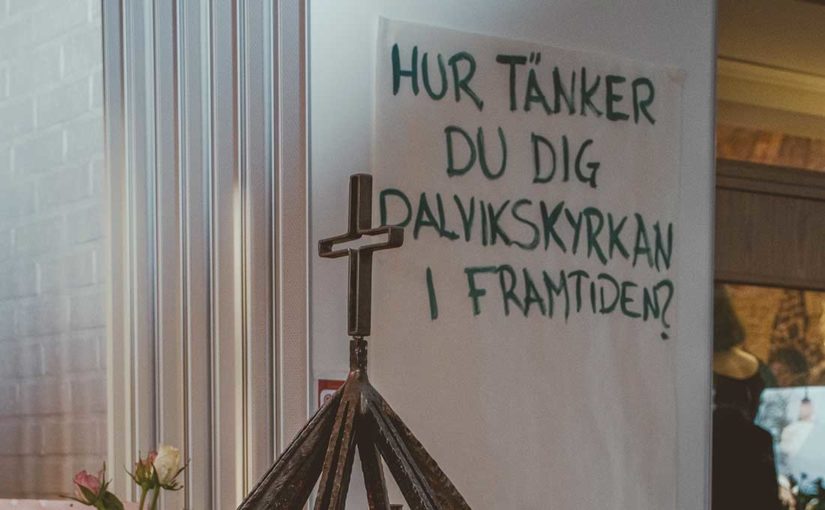 HUR TÄNKER
DU DIG
DALVIKSKYRKAN
I FRAMTIDEN?